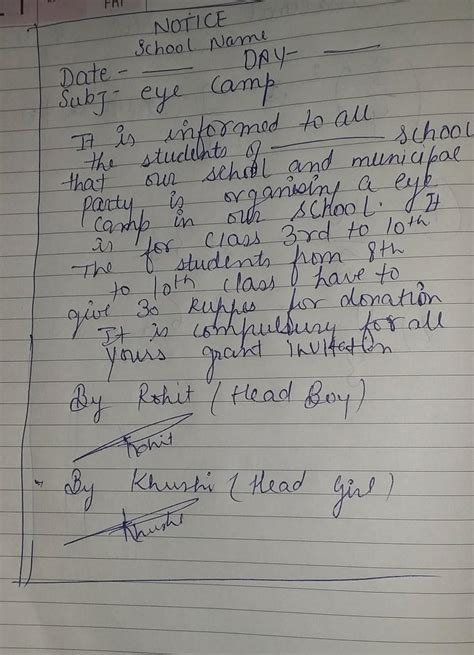 FRI
NOTICE
School Name
Date - ____ DAY- ____
Subj- eye camp
It is informed to all
the students of ________ school
that our school and municipal
party is organising a eye
camp in our school. It
is for class 3rd to 10th
The students from 8th
to 10th class have to
give 30 Ruppes for donation
It is compulsury for all
Yours grant invitation
By Rohit (Head Boy)
Rohit
- By Khushi (Head Girl)
Khushi